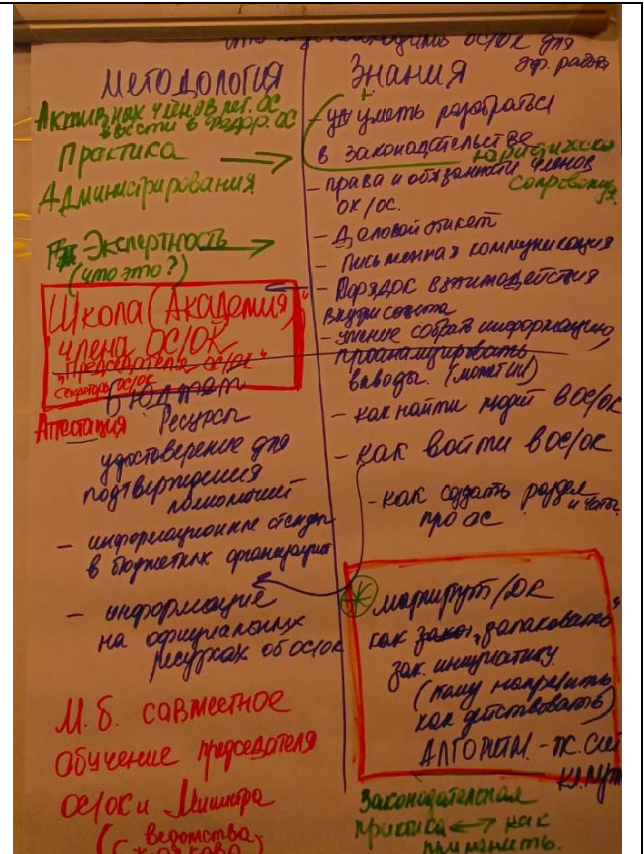 необходимо ОС/ОК для
эф. работы
Методология
Активных членов рег. ОС
ввести в федер. ОС
Практика
Администрирования
Экспертность
(что это?)
Школа (Академия)
члена ОС/ОК
"Председателя ОС/ОК"
Секретарь ОС/ОК
Бюджет
Аттестация
Ресурсы
удостоверение для
подтверждения
полномочий
- информационные стенды
в бюджетных организациях
- информация
на официальных
ресурсах об ОС/ОК
М.б. совместное
обучение председателя
ОС/ОК и Министра
(ведомства
Знания
+
- уметь разобраться
в законодательстве
юридическое
сопровожд.
- права и обязанности членов
ОК/ОС.
- Деловой этикет
- письменная коммуникация
- Порядок взаимодействия
внутри совета
- умение собрать информацию,
проанализировать
выводы. (может ли)
- как найти людей в ОС/ОК
- как войти в ОС/ОК
- как создать раздел
и чаты
про ОС
маршрут/ДК
как "запаковать"
зак. инициативу.
(кому направить
как действовать)
АЛГОРИТМ.
Законодательная
практика ↔ как
применить.